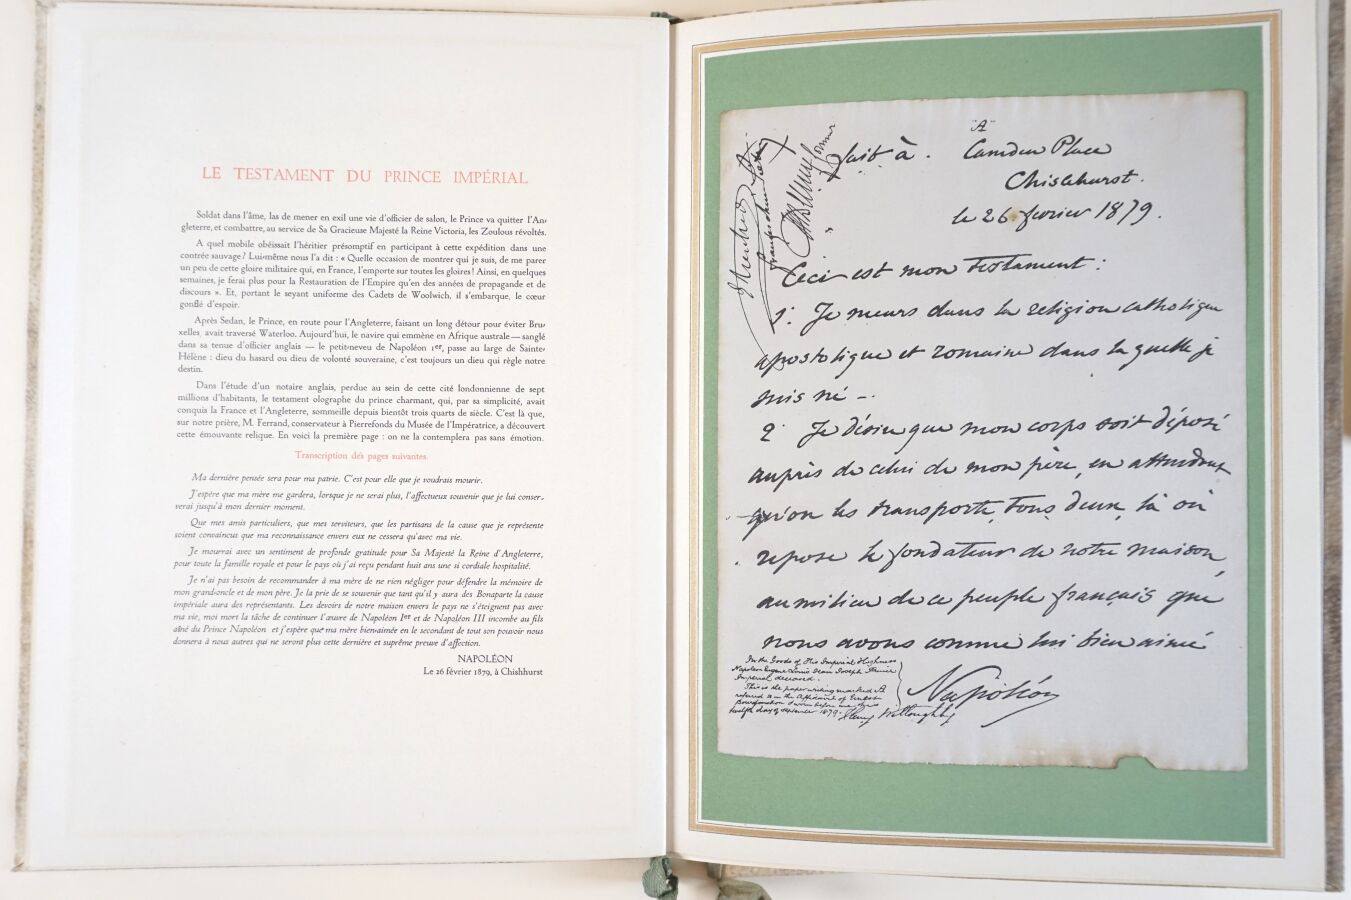 LE TESTAMENT DU PRINCE IMPÉRIAL
Soldat dans l'âme, las de mener en exil une vie d'officier de salon, le Prince va quitter l'An-
gleterre, et combattre, au service de Sa Gracieuse Majesté la Reine Victoria, les Zoulous révoltés.
A quel mobile obéissait l'héritier présomptif en participant à cette expédition dans une
contrée sauvage? Lui-même nous l'a dit : « Quelle occasion de montrer qui je suis, de me parer
un peu de cette gloire militaire qui, en France, l'emporte sur toutes les gloires! Ainsi, en quelques
semaines, je ferai plus pour la Restauration de l'Empire qu'en des années de propagande et de
discours ». Et, portant le seyant uniforme des Cadets de Woolwich, il s'embarque, le cœur
gonflé d'espoir.
Après Sedan, le Prince, en route pour l'Angleterre, faisant un long détour pour éviter Bru-
xelles, avait traversé Waterloo. Aujourd'hui, le navire qui emmène en Afrique australe — sanglé
dans sa tenue d'officier anglais — le petit-neveu de Napoléon 1er, passe au large de Sainte-
Hélène : dieu du hasard ou dieu de volonté souveraine, c'est toujours un dieu qui règle notre
destin.
Dans l'étude d'un notaire anglais, perdue au sein de cette cité londonnienne de sept
millions d'habitants, le testament olographe du prince charmant, qui, par sa simplicité, avait
conquis la France et l'Angleterre, sommeille depuis bientôt trois quarts de siècle. C'est là que,
sur notre prière, M. Ferrand, conservateur à Pierrefonds du Musée de l'Impératrice, a découvert
cette émouvante relique. En voici la première page : on ne la contemplera pas sans émotion.
Transcription des pages suivantes.
Ma dernière pensée sera pour ma patrie. C'est pour elle que je voudrais mourir.
J'espère que ma mère me gardera, lorsque je ne serai plus, l'affectueux souvenir que je lui conser-
verai jusqu'à mon dernier moment.
Que mes amis particuliers, que mes serviteurs, que les partisans de la cause que je représente
soient convaincus que ma reconnaissance envers eux ne cessera qu'avec ma vie.
Je mourrai avec un sentiment de profonde gratitude pour Sa Majesté la Reine d'Angleterre,
pour toute la famille royale et pour le pays où j'ai reçu pendant huit ans une si cordiale hospitalité.
Je n'ai pas besoin de recommander à ma mère de ne rien négliger pour défendre la mémoire de
mon grand-oncle et de mon père. Je la prie de se souvenir que tant qu'il y aura des Bonaparte la cause
impériale aura des représentants. Les devoirs de notre maison envers le pays ne s'éteignent pas avec
ma vie, moi mort la tâche de continuer l'œuvre de Napoléon Ier et de Napoléon III incombe au fils
aîné du Prince Napoléon et j'espère que ma mère bien-aimée en le secondant de tout son pouvoir nous
donnera à nous autres qui ne seront plus cette dernière et suprême preuve d'affection.
NAPOLÉON
Le 26 février 1879, à Chishhurst
"A"
fait à . Camden Place
Chislehurst.
le 26 fevrier 1879.
Ceci est mon testament :
1. Je meurs dans la religion catholique
apostolique et romaine dans laquelle je
suis né -.
2 Je désire que mon corps soit déposé
auprès de celui de mon père, en attendant
qu'on les transporte, tous deux, là où
repose le fondateur de notre maison,
au milieu de ce peuple français que
nous avons comme lui bien aimé
In the Goods of His Imperial Highness
Napoleon Eugene Louis Jean Joseph Prince
Imperial, deceased.
This is the paper writing marked A
referred to in the Affidavit of
sworn before me this
twelfth day of September 1879.
Henry Willoughby
Napoléon